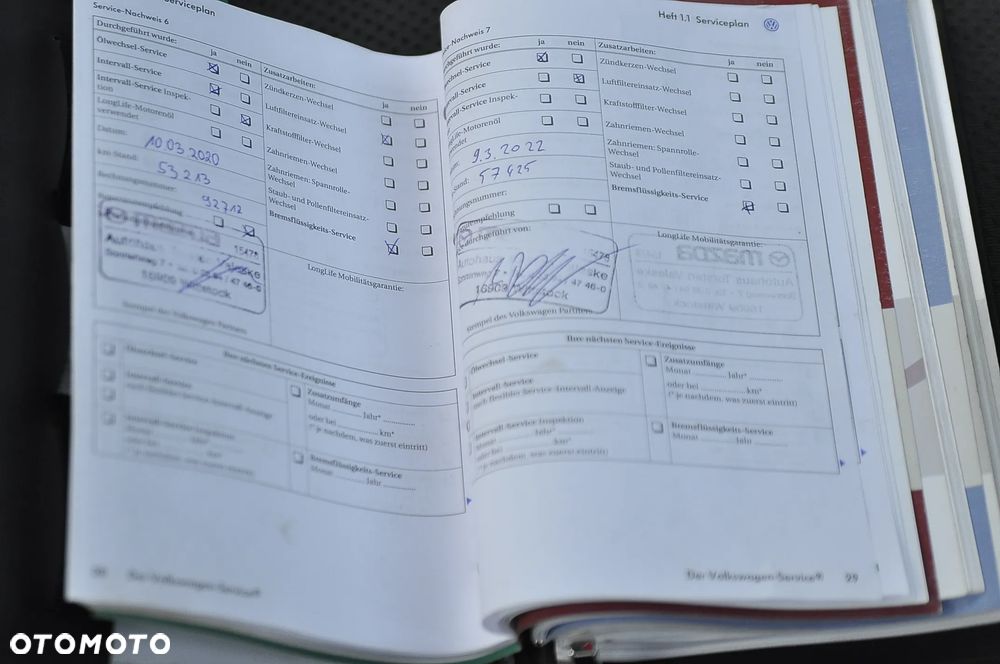 Serviceplan
Service-Nachweis 6
Durchgeführt wurde: ja nein
Ölwechsel-Service
Intervall-Service
Intervall-Service Inspek-
tion
LongLife-Motorenöl
verwendet
Datum: 10 03 2020
km-Stand: 53 213
Rechnungsnummer: 92712
Zusatzarbeiten: ja nein
Zündkerzen-Wechsel
Luftfiltereinsatz-Wechsel
Kraftstofffilter-Wechsel
Zahnriemen-Wechsel
Zahnriemen: Spannrolle-
Wechsel
Staub- und Pollenfiltereinsatz-
Wechsel
Bremsflüssigkeits-Service
LongLife Mobilitätsgarantie:
Autohaus
Stempel des Volkswagen Partners
Ihre nächsten Service-Ereignisse
Ölwechsel-Service
Intervall-Service
nach flexibler Service-Intervall-Anzeige
Intervall-Service Inspektion
Zusatzumfänge
Monat ........... Jahr* ...........
oder bei ........... km*
(* je nachdem, was zuerst eintritt)
Bremsflüssigkeits-Service
Monat ........... Jahr ...........
Der Volkswagen Service®
Heft 1.1 Serviceplan
Nachweis 7
wurde: ja nein
-Service
-Service
Service Inspek-
Life-Motorenöl
9.3.2022
Stand: 57 425
nummer:
durchgeführt von:
Zusatzarbeiten: ja nein
Zündkerzen-Wechsel
Luftfiltereinsatz-Wechsel
Kraftstofffilter-Wechsel
Zahnriemen-Wechsel
Zahnriemen: Spannrolle-
Wechsel
Staub- und Pollenfiltereinsatz-
Wechsel
Bremsflüssigkeits-Service
LongLife Mobilitätsgarantie:
mazda
Stempel des Volkswagen Partners
Ihre nächsten Service-Ereignisse
Ölwechsel-Service
Intervall-Service
nach flexibler Service-Intervall-Anzeige
Intervall-Service Inspektion
Monat ........... Jahr* ...........
oder bei ........... km*
(* je nachdem, was zuerst eintritt)
Zusatzumfänge
Monat ........... Jahr* ...........
oder bei ........... km*
(* je nachdem, was zuerst eintritt)
Bremsflüssigkeits-Service
Monat ........... Jahr ...........
Der Volkswagen Service® 29
OTOMOTO